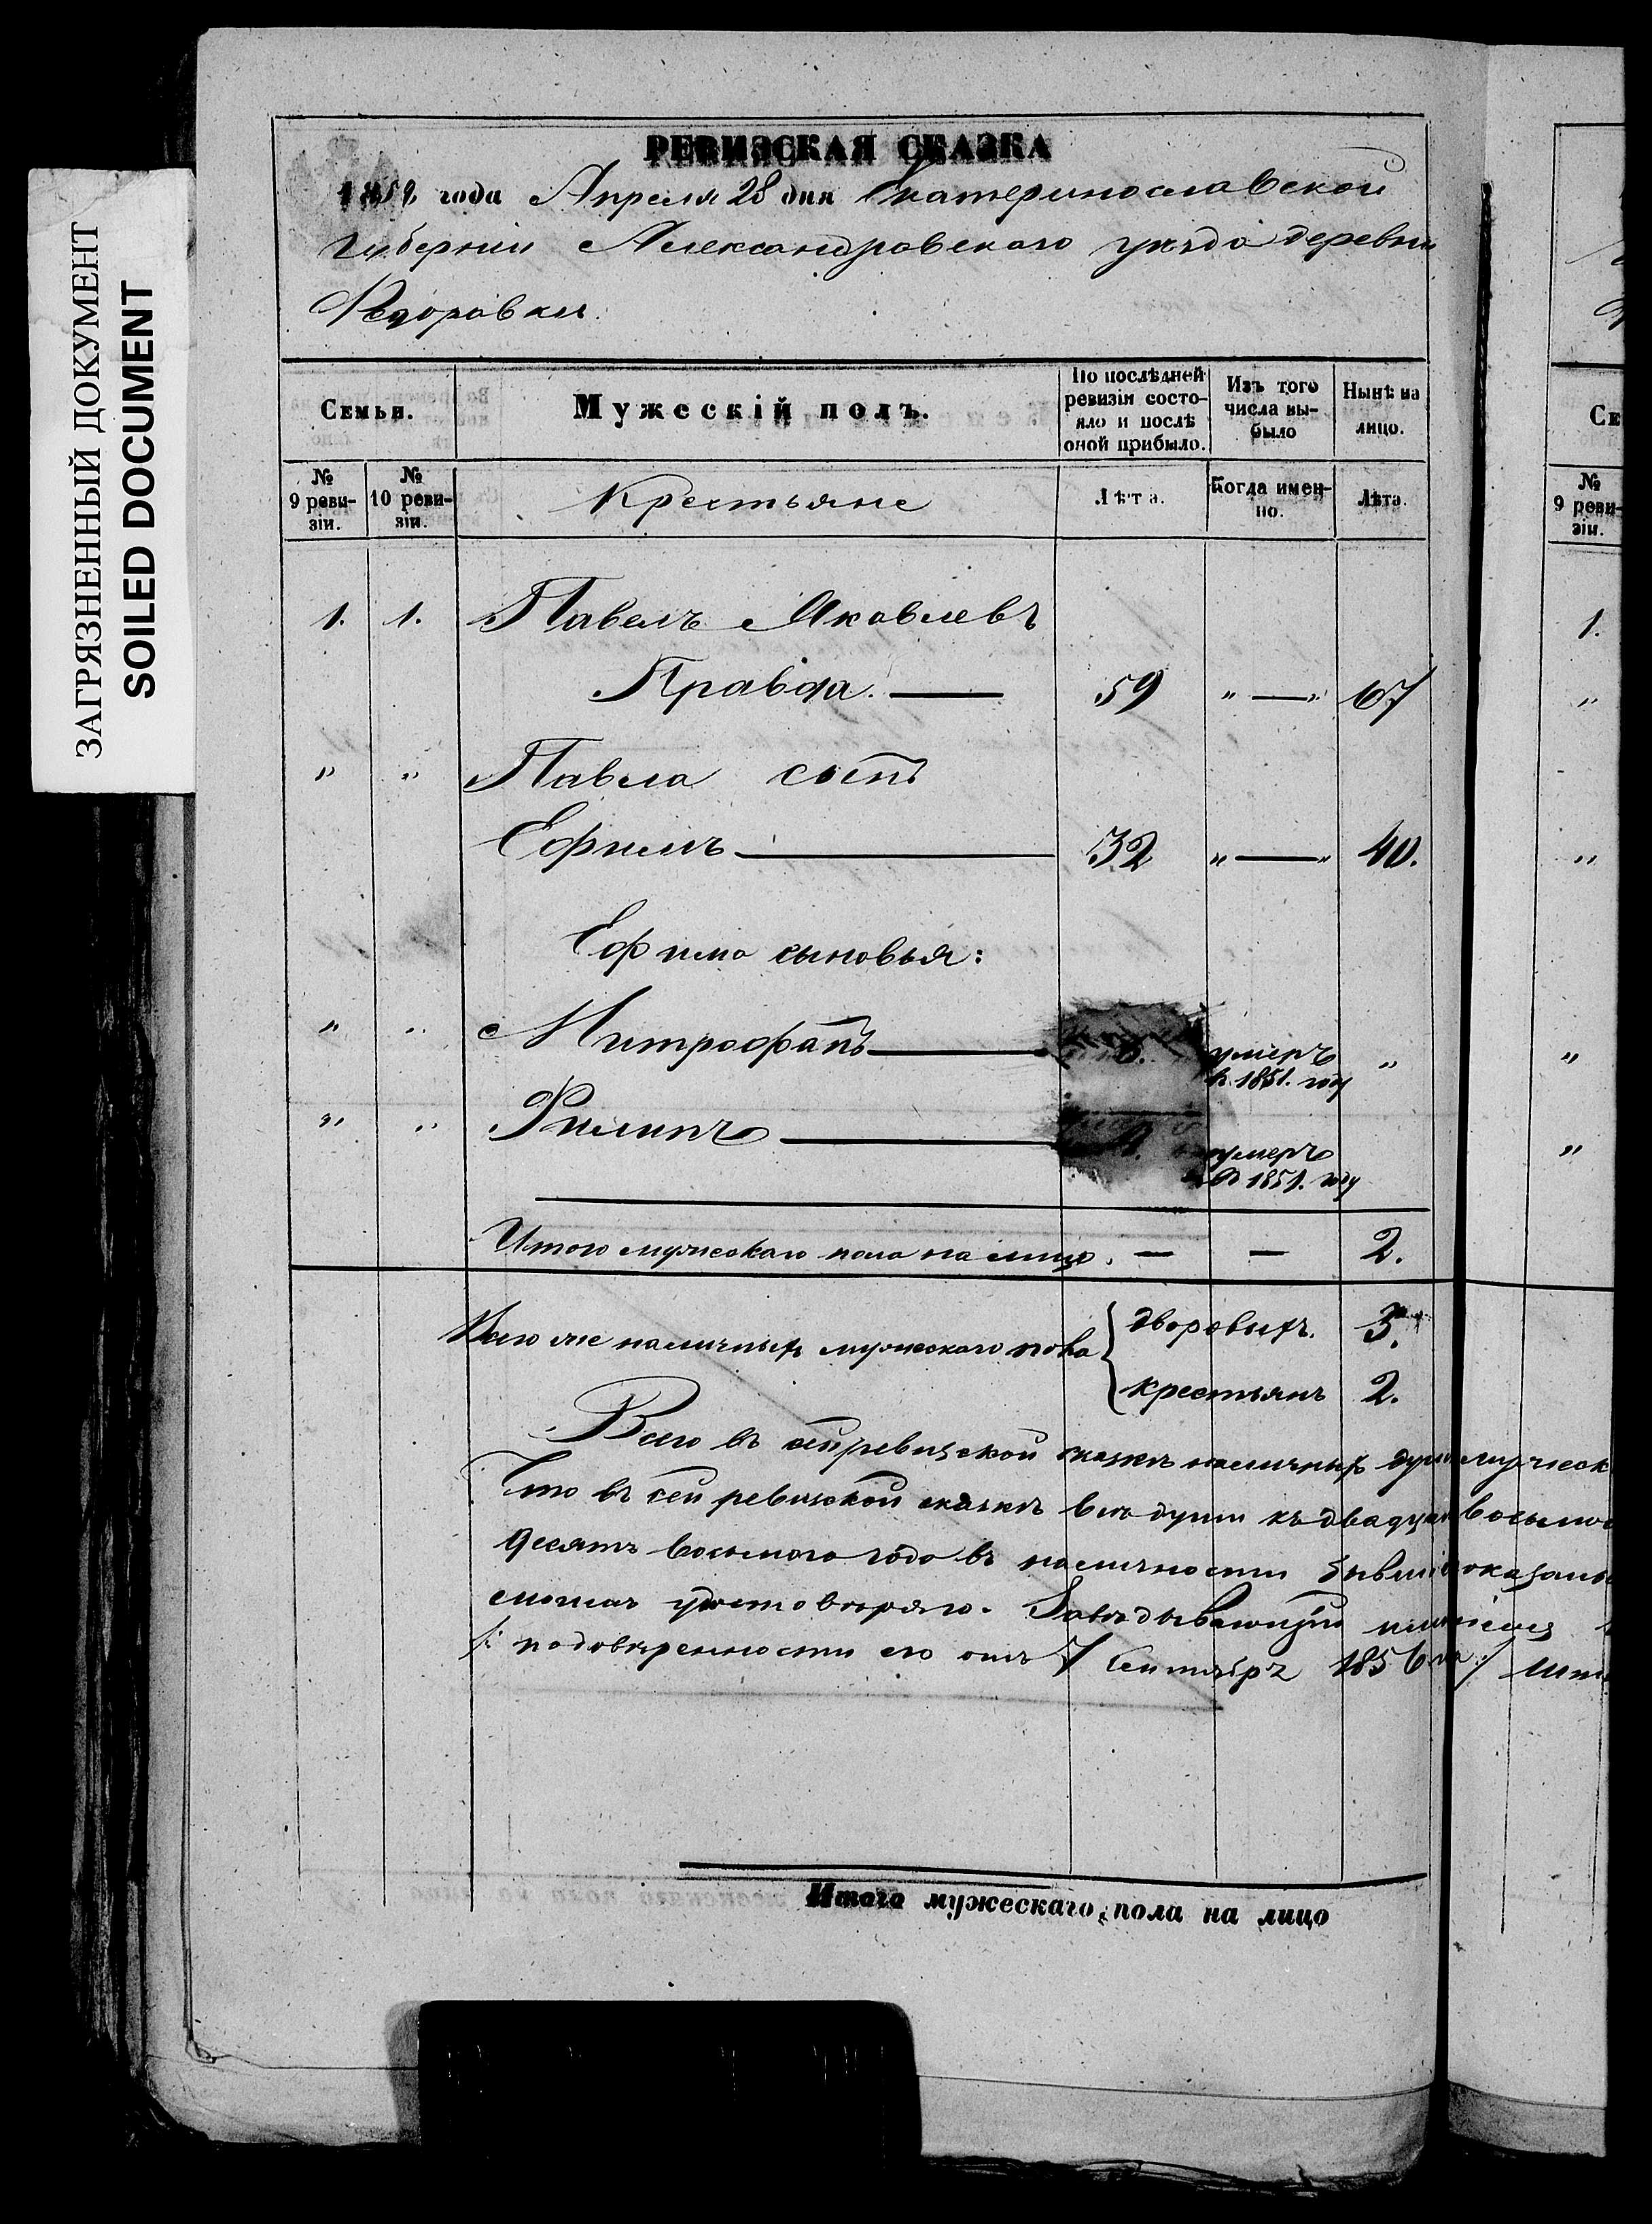 ЗАГРЯЗНЕННЫЙ ДОКУМЕНТ
SOILED DOCUMENT
РЕВИЗСКАЯ СКАЗКА
1858 года Апреля 28 дня Екатеринославской
Губерніи Александровскаго уѣзда деревни
Ѳедоровки.
Семьи.
Мужескій полъ.
По послѣдней ревизіи состояло и послѣ оной прибыло.
Изъ того числа выбыло
Нынѣ на лицо.
№ 9 ревизіи.
№ 10 ревизіи.
Крестьяне
Лѣта.
Когда именно.
Лѣта.
1. 1. Павелъ Яковлевъ
Правда. — 59 „ — „ 67
„ „ Павла сынъ
Ефимъ — 32 „ — „ 40.
Ефима сыновья:
„ „ Митрофанъ — умеръ „
в 1851. году
„ „ Филипъ — умеръ
въ 1851. году
Итого мужескаго пола на лицо. — — 2.
Всего же наличныхъ мужескаго пола { дворовыхъ. 3.
крестьянъ 2.
Всего въ сей ревизской сказкѣ наличныхъ душъ мужеск
Что въ сей ревизской сказкѣ всѣ души къ двадцать восьмо
десятъ восьмого года въ наличности бывшіе оказаны
удостовѣряю. Завѣдывающій имѣніемъ
/: по довѣренности его отъ 7 Сентября 1856 года :/ Шт
Итого мужескаго пола на лицо
Се
№ 9 ревизіи.
1.
„
„
„
„